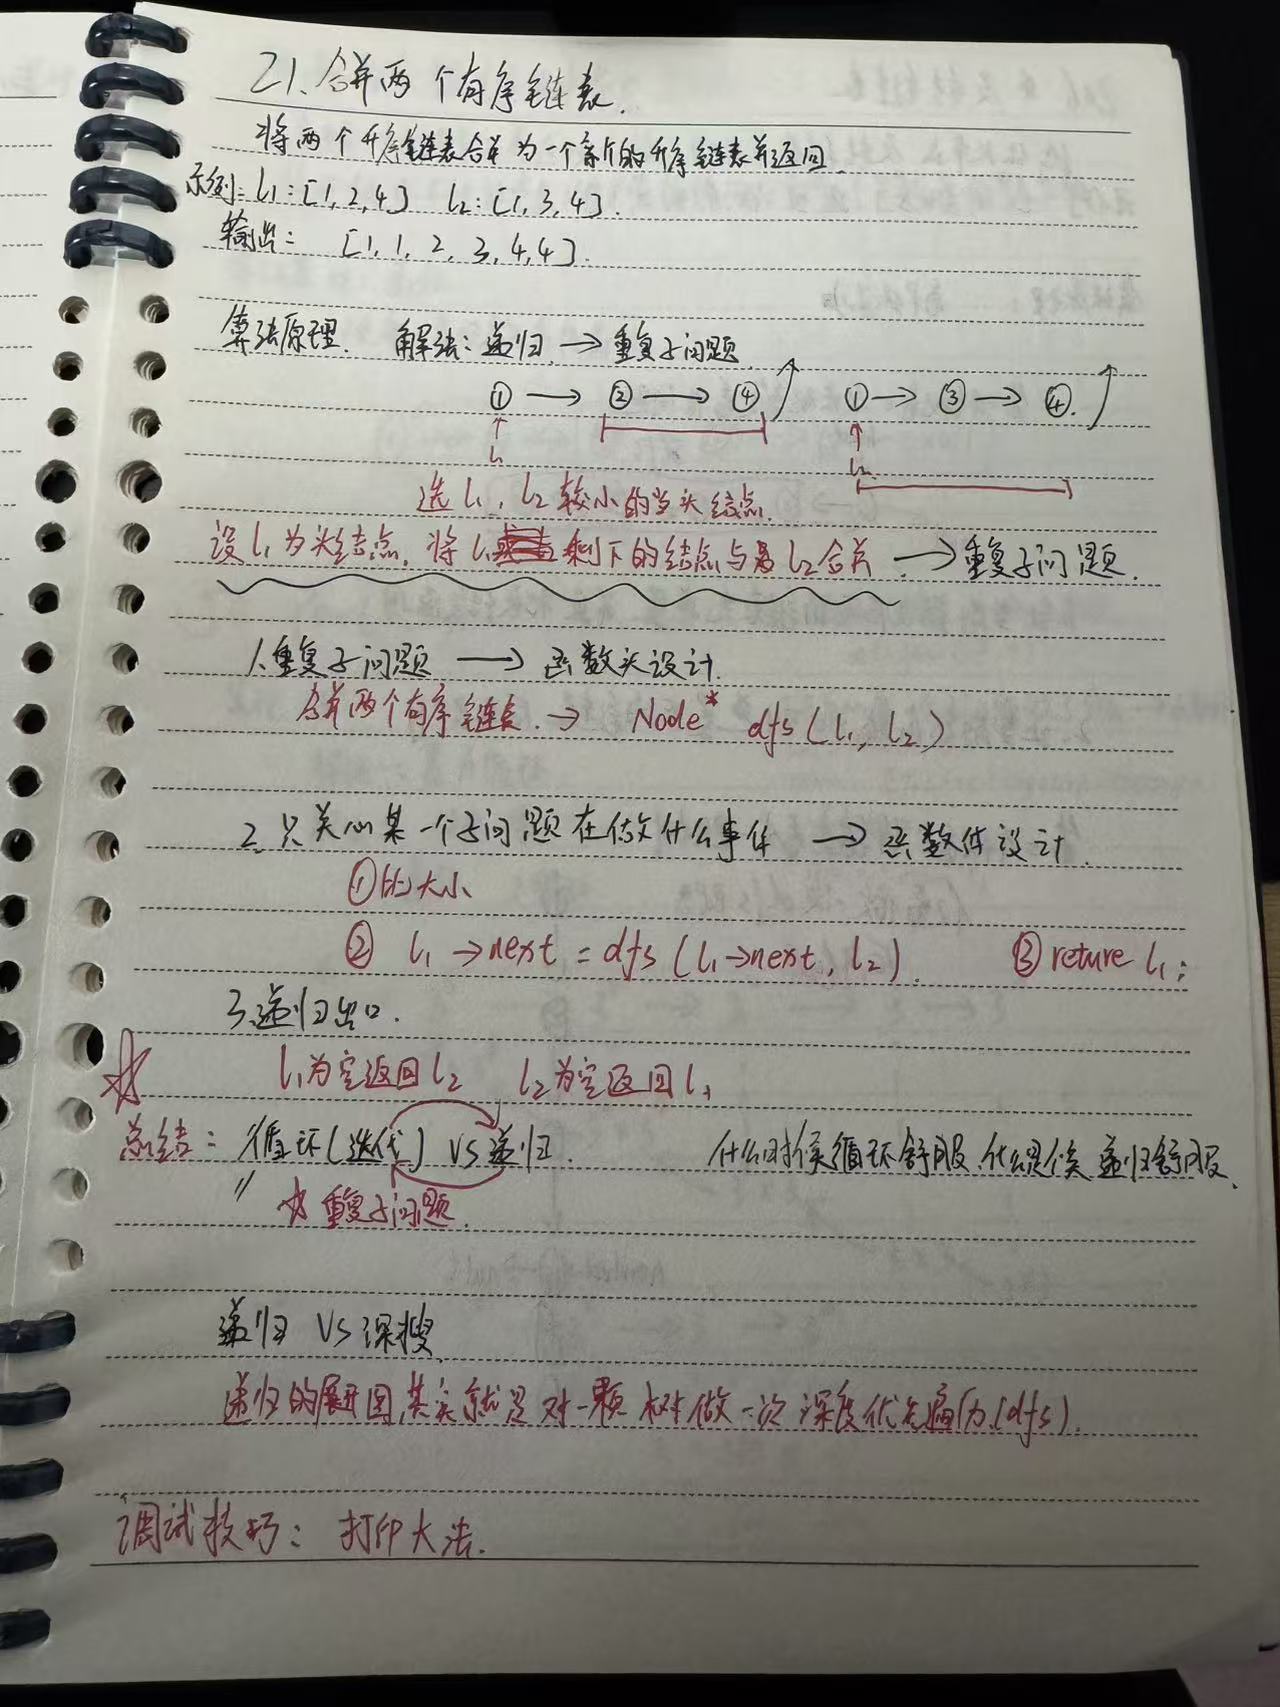 21. 合并两个有序链表.
将两个升序链表合并为一个新的升序链表并返回.
示例: l₁:[1,2,4] l₂:[1,3,4].
输出: [1,1,2,3,4,4].
算法原理. 解法:递归 → 重复子问题
① → ② → ④ ① → ③ → ④.
l₁ l₂
选 l₁, l₂ 较小的当头结点.
设 l₁ 为头结点, 将 l₁ 剩下的结点与 l₂ 合并 → 重复子问题.
1.重复子问题 → 函数头设计.
合并两个有序链表. → Node* dfs(l₁, l₂)
2.只关心某一个子问题在做什么事件 → 函数体设计.
①比大小
② l₁→next = dfs(l₁→next, l₂). ③ reture l₁;
3.递归出口.
l₁为空返回l₂ l₂为空返回l₁
总结: 循环(迭代) VS 递归. 什么时候循环舒服,什么时候递归舒服.
重复子问题.
递归 VS 深搜
递归的展开图,其实就是对一颗树做一次深度优先遍历(dfs).
调试技巧: 打印大法.